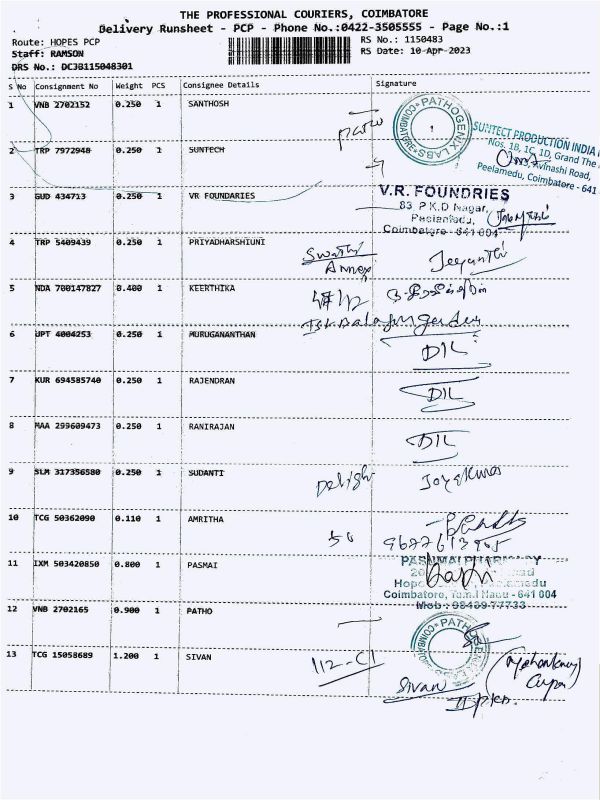 THE PROFESSIONAL COURIERS, COIMBATORE
Delivery Runsheet - PCP - Phone No.:0422-3505555 - Page No.:1
Route: HOPES PCP RS No.: 1150483
Staff: RAMSON RS Date: 10-Apr-2023
DRS No.: DCJB115048301
S No Consignment No Weight PCS Consignee Details Signature
1 VNB 2702152 0.250 1 SANTHOSH
PATHOGENIX LABS COIMBATORE
2 TRP 7972948 0.250 1 SUNTECH
SUNTECT PRODUCTION INDIA
Nos. 1B, 1C, 1D, Grand The
Avinashi Road,
Peelamedu, Coimbatore - 641
3 GUD 434713 0.250 1 VR FOUNDARIES
V.R. FOUNDRIES
83, P.K.D Nagar,
Peelamedu,
Coimbatore - 641 004
4 TRP 5409439 0.250 1 PRIYADHARSHIUNI
Swathi Annex Jeyanthi
5 NDA 700147827 0.400 1 KEERTHIKA
6 UPT 4004253 0.250 1 MURUGANANTHAN
DIL
7 KUR 694585740 0.250 1 RAJENDRAN
DIL
8 MAA 299609473 0.250 1 RANIRAJAN
DIL
9 SLM 317356580 0.250 1 SUDANTI
Delight
10 TCG 50362090 0.110 1 AMRITHA
50 9677613905
11 IXM 503420850 0.800 1 PASMAI
PASUMAI PHARMACY
Coimbatore, Tamil Nadu - 641 004
Mob : 98439 77733
12 VNB 2702165 0.900 1 PATHO
13 TCG 15058689 1.200 1 SIVAN
112-C1 Sivan